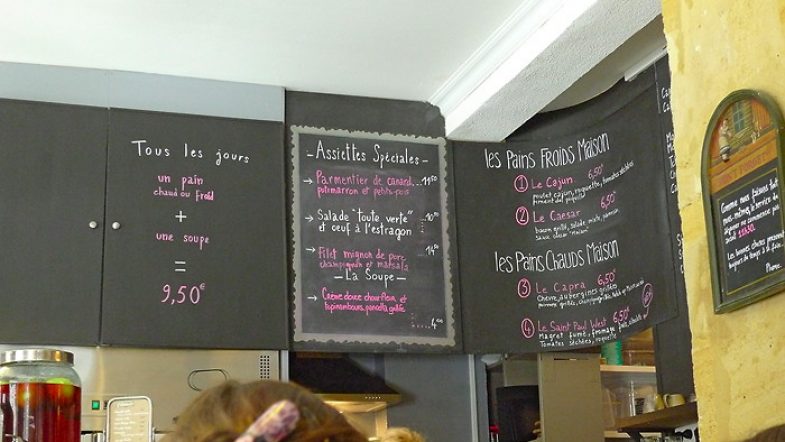 Tous les jours
un pain
chaud ou froid
+
une soupe
=
9,50€
- Assiettes Spéciales -
→ Parmentier de canard 11,50
potimarron et petits-pois
→ Salade "toute verte" 10,50
et oeuf à l'estragon
→ Filet mignon de porc 14,50
champignon et marsala
- La Soupe -
→ Crème douce chou-fleur et
topinambours, pancetta grillée
4,00
les Pains Froids Maison
1 Le Cajun 6,50€
poulet cajun, roquette, tomates séchées
2 Le Caesar 6,50€
bacon grillé, salade
les Pains Chauds Maison
3 Le Capra 6,50€
Chèvre, aubergines grillées
4 Le Saint Paul West 6,50€
Magret fumé, fromage frais
Tomates séchées, roquette
Comme nous faisons tout
nous-mêmes, le service du
déjeuner ne commence pas
avant 11h30.
Les bonnes choses prennent
toujours du temps